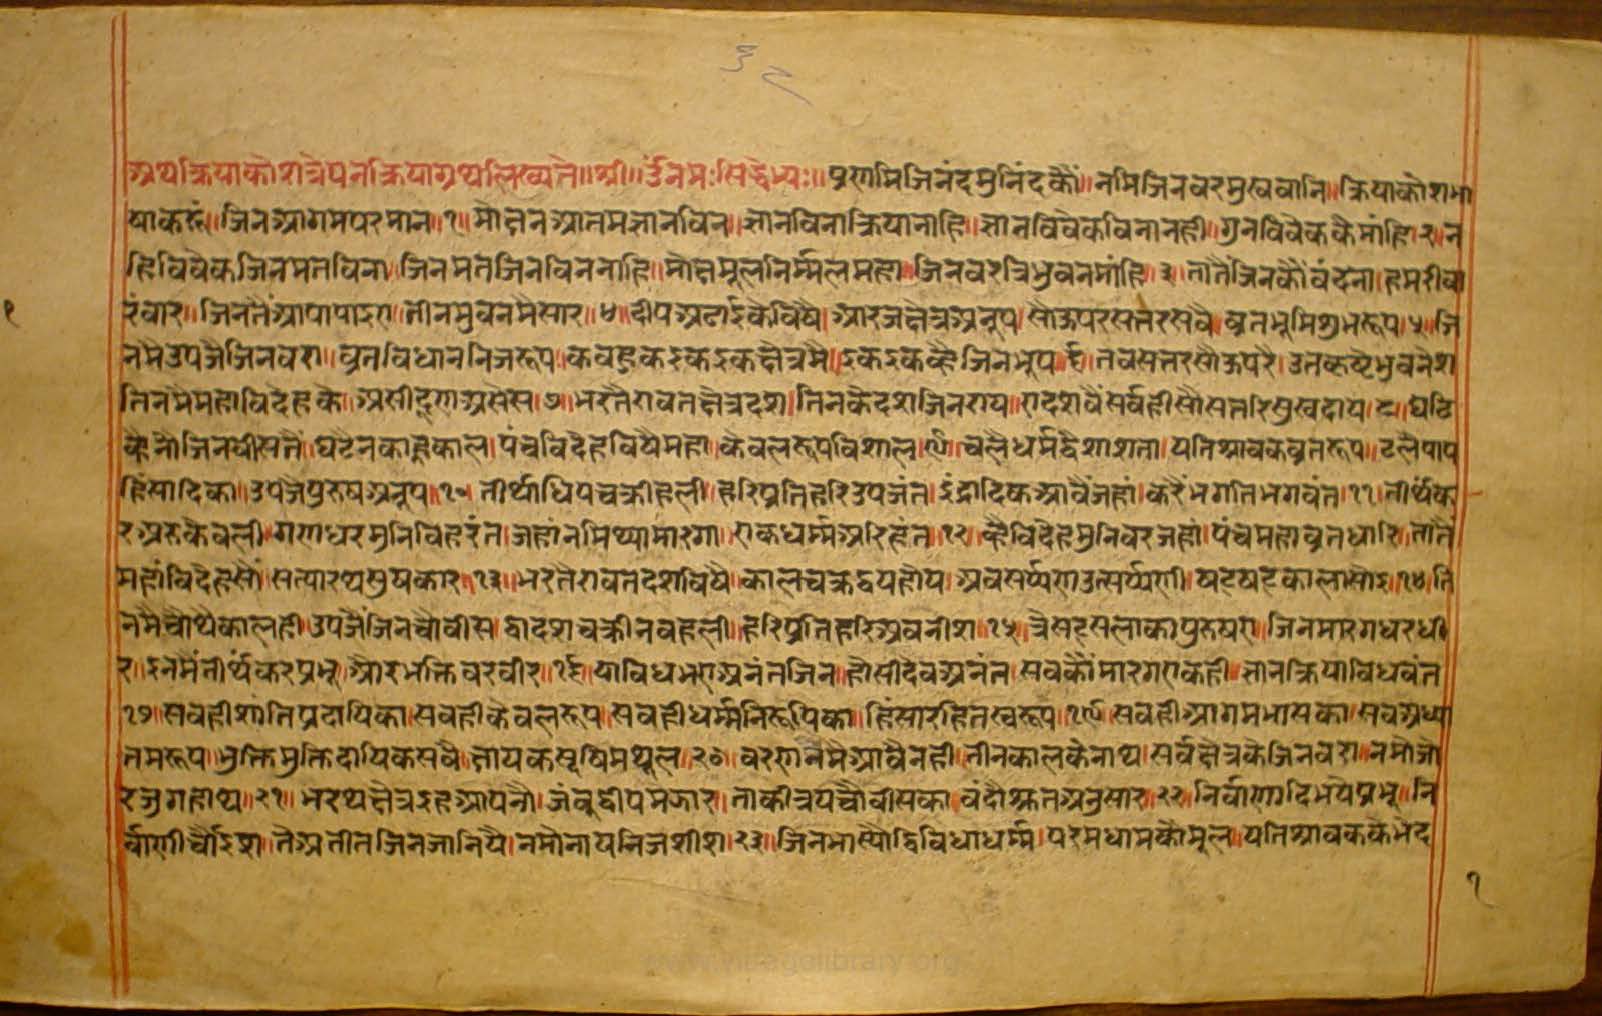 ३८
अथक्रियाकोशत्रेपनक्रियाग्रथलिख्यतै॥श्री॥ॐनमःसिद्धेभ्यः॥प्रणमिजिनंदमुनिंदकौं॥नमिजिनवरमुखवानि॥क्रियाकोशभा
षाकहूं॥जिनआगमपरमान॥१॥मोक्षनआतमज्ञानविन॥ज्ञानविनाक्रियानाहि॥ज्ञानविवेकविनानही॥गुनविवेककैमांहि।२।न
हिविवेकजिनमतविना॥जिनमतजिनविननाहि॥मोक्षमूलनिर्म्मलमहा॥जिनवरत्रिभुवनमांहि।३।तातैंजिनकौंवंदना॥हमरीवा
रंवार॥जिनतैंआपापाइए॥तीनभुवनमैसार॥४॥दीपअढाईकैविषै॥आरजक्षेत्रअनूप।सोऊपरसत्तरसवै।व्रतभूमिशुभरूप।५॥जि
नमैउपजैजिनवरा॥व्रतविधाननिजरूप।कवहूकइकइकक्षेत्रमै॥इकइकव्हैजिनभूप।६।तवसत्तरसौऊपरै।उतकृष्टेभुवनेश
तिनमैमहाविदेहकै॥असीदूणअसेस।७।भरतैरावतक्षेत्रदश।तिनकैदशजिनराय॥एदशवैसर्वहीसौसत्तरिसुखदाय।८।घटि
व्हैतौजिनवीसतैं।घटैनकाहूकाल।पंचविदेहविषैमहा।केवलरूपविशाल।९।चलैधर्मद्वैशाशता।यतिश्रावकव्रतरूप॥टलैपाप
हिंसादिका॥उपजैपुरुषअनूप॥१०॥तीर्थाधिपचक्रीहली॥हरिप्रतिहरिउपजंत॥इंद्रादिकआवैंजहां॥करैंभगतिभगवंत।११।तीर्थंक
रअरुकेवली॥गणधरमुनिविहरंत।जहांनमिथ्यामारगा॥एकधर्म्मअरिहंत॥१२॥व्हैविदेहमुनिवरजहां।पंचमहाव्रतधारि।तातै
महांविदेहसौ।सत्यारथसुषकार॥१३॥भरतैरावतदशविषै॥कालचक्रद्वयहोय।अवसर्प्पणाउत्सर्प्पणी।षटषटकालासोइ।१४।ति
नमैचौथैकालही।उपजैंजिनचौवीस।द्वादशचक्रीनवहली॥हरिप्रतिहरिअवनीश।१५।त्रैसटसलाकापुरुषए॥जिनमारगधरधी
र।इनमैंतीर्थंकरप्रभू।औरभक्तिवरवीर॥१६॥याविधभएअनंतजिन॥होसीदेवअनंत।सवकौंमारगएकही॥ज्ञानक्रियाविधवंत
१७॥सवहीशांतिप्रदायिका॥सवहीकेवलरूप॥सवहीधर्म्मनिरूपिका॥हिंसारहितस्वरूप॥१९॥सवहीआगमभासका।सवअध्या
तमरूप॥भुक्तिमुक्तिदायिकसवै॥ज्ञायकसूषिमथूल॥२०॥वरणनमैआवैनही॥तीनकालकेनाथ॥सर्वक्षेत्रकेजिनवरा॥नमोजो
रजुगहाथ॥२१॥भरथक्षेत्रइहआपनौ॥जंवूद्वीपमझार॥ताकीत्रयचौवीसका॥वंदौश्रुतअनुसार॥२२॥निर्वाणादिभयेप्रभू॥नि
र्वाणीचौईश॥तैअतीतजिनजानियै॥नमोनायनिजशीश॥२३॥जिनभास्यौद्विविधाधर्म्म।परमधामकौमूल॥यतिश्रावककेभेद
१
१
www.yidegolibrary.org